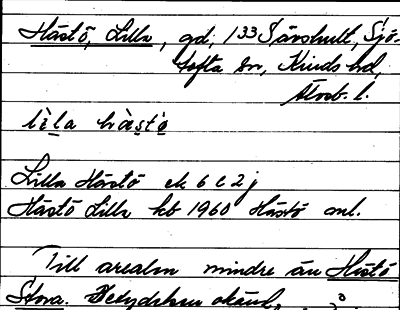 Hästö, Lilla, gd, 1 33 Särshult, Sjö-
tofta sn, Kinds hd,
Älvsb. l.
lìla hàstö
Lilla Hästö ek 6 C 2 j
Hästö Lilla kb 1960 Hästö anl.
Till arealen mindre än Hästö
Stora. Betydelsen okänd,